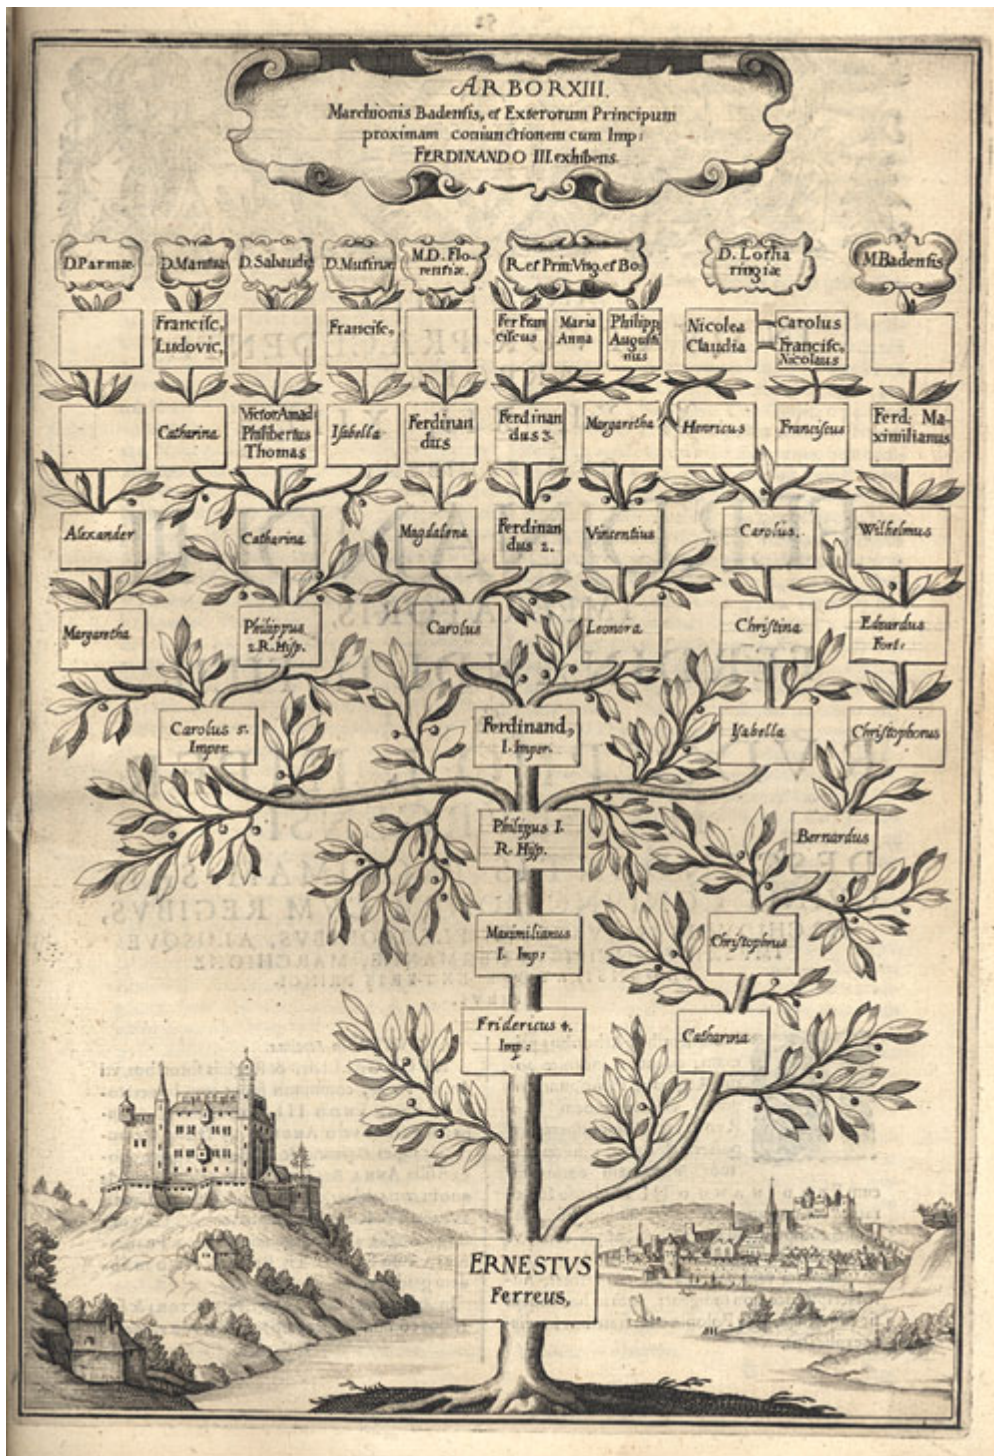 ARBOR XIII.
Marchionis Badensis, et Exterorum Principum
proximam coniunctionem cum Imp:
FERDINANDO III. exhibens.
D. Parmæ
D. Mantuæ
D. Sabaudiæ
D. Mutinæ
M.D. Flo-
rentiæ.
R. et Prin: Vng. et Bo:
D. Lotha
ringiæ
M. Badensis
Francisc,
Ludovic,
Francisc,
Fer Fran
ciscus
Maria
Anna
Philipp
Augusti
nus
Nicolea
Claudia
Carolus
Francisc,
Nicolaus
Catharina
Victor Amad:
Philibertus
Thomas
Isabella
Ferdinan
dus
Ferdinan
dus 3.
Margaretha
Henricus
Franciscus
Ferd: Ma-
ximilianus
Alexander
Catharina
Magdalena
Ferdinan
dus 2.
Vincentius
Carolus.
Wilhelmus
Margaretha
Philippus
2. R. Hisp.
Carolus
Leonora
Christina
Eduardus
Fort:
Carolus 5.
Imper.
Ferdinand,
I. Imper.
Isabella
Christophorus
Philippus I.
R. Hisp.
Bernardus
Maximilianus
I. Imp:
Christophrus
Fridericus 4.
Imp:
Catharina
ERNESTVS
Ferreus,